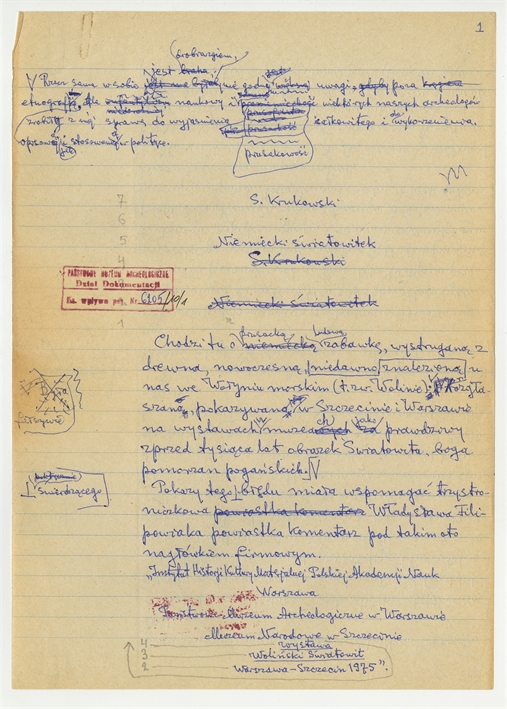 1
drobiazgiem,
jest braha jest
Rzecz sama w sobie godną uwagi, gdyby poza
etnografią, dla naukowy i pamimeckość niektórych naszych archeologów
zrobiły z niej sprawę do wyjaśnienia całkowitego i do wyborzenienia.
opisowej i stosowanej polityce.
pruszkowość
7
6
5
4
1
S. Krukowski
Niemecki światowitek
S. Krukowski
Niemecki światowitek
PAŃSTWOWE MUZEUM ARCHEOLOGICZNE
Dział Dokumentacji
Ks. wpływu poz. Nr. 6105/10/1
pruacką lalwą
Chodzi tu o niemiecką zabawkę, wystruganą z
drewna, nowoczesną, niedawno znalezioną u
nas we Wołyniu morskim (t.zw. Wolinie). Rozgła-
szaną, pokazywaną w Szczecinie i Warszawie
na wystawach muzealnych jako prawdziwy
zprzed tysiąca lat obrazek Światowita, boga
pomorzan pogańskich.
śmierdzącego
Pokazy tego błędu miała wspomagać trzystro-
niczkowa powiastka komentarz Władysława Fili-
powiaka powiastka komentarz pod takim oto
nagłówkiem firmowym.
„Instytut Historji Kultury Materjalnej Polskiej Akademji Nauk
Warszawa
Państwowe Muzeum Archeologiczne w Warszawie
Muzeum Narodowe w Szczecinie
4 wystawa
3 Woliński Światowit
2 Warszawa-Szczecin 1975”.